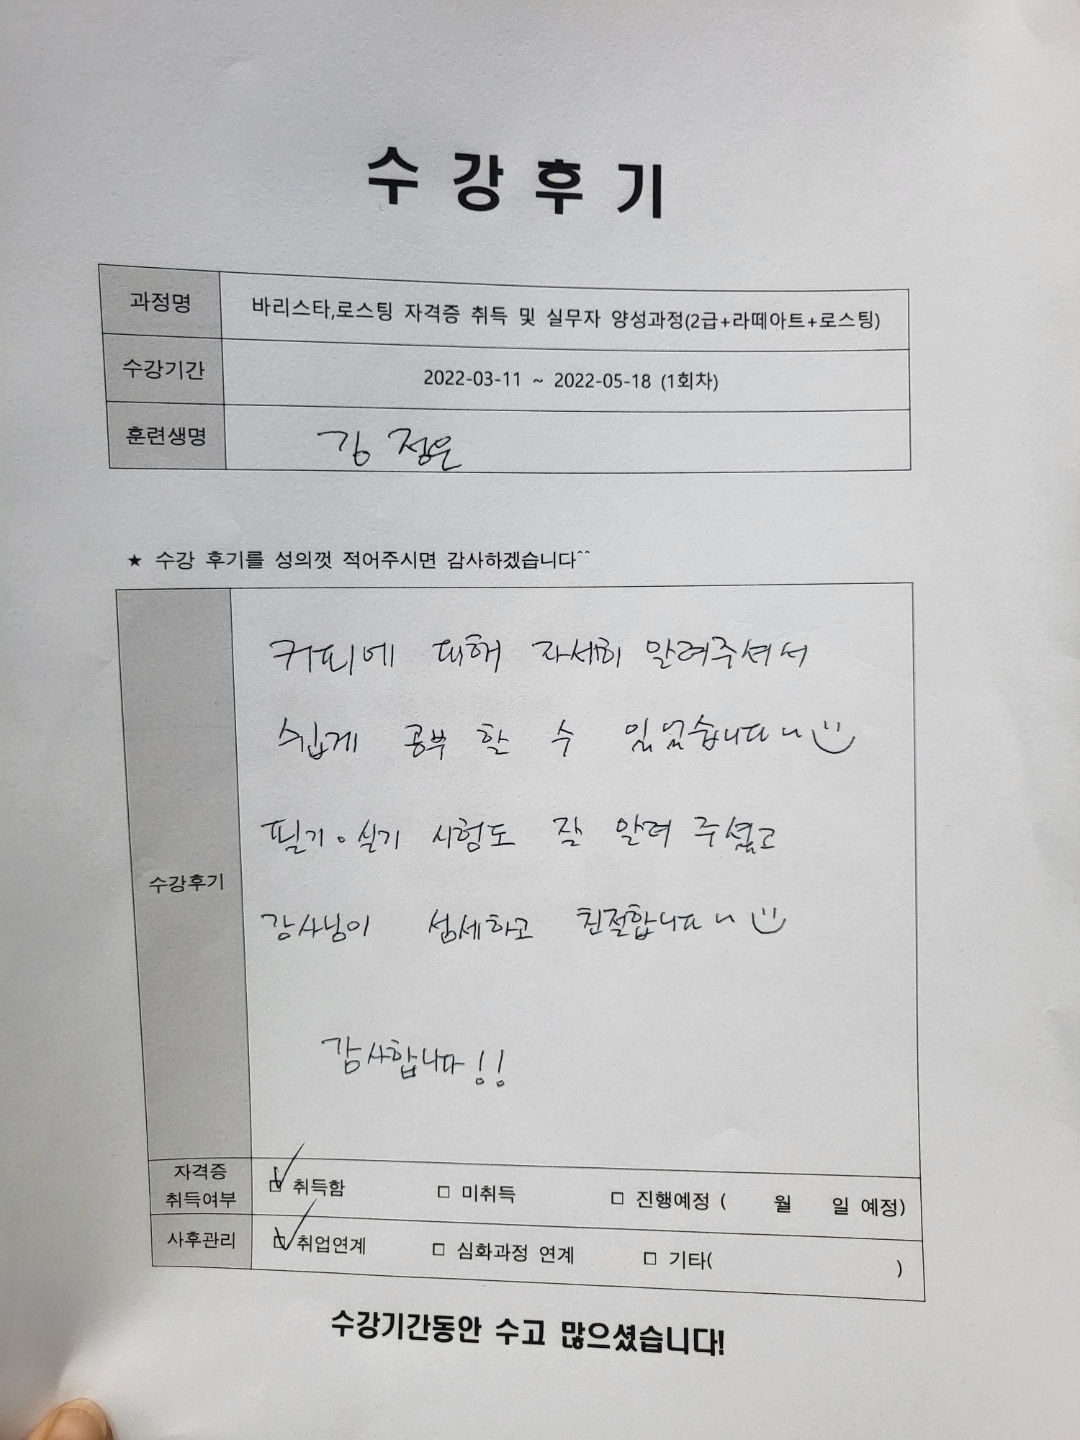 수강후기
과정명 바리스타,로스팅 자격증 취득 및 실무자 양성과정(2급+라떼아트+로스팅)
수강기간 2022-03-11 ~ 2022-05-18 (1회차)
훈련생명 김정은
★ 수강 후기를 성의껏 적어주시면 감사하겠습니다^^
커피에 대해 자세히 알려주셔서
쉽게 공부 할 수 있었습니다~
필기。실기 시험도 잘 알려 주셨고
수강후기
강사님이 섬세하고 친절합니다~
감사합니다!!
자격증
취득여부 □ 취득함 □ 미취득 □ 진행예정 ( 월 일 예정)
사후관리 □ 취업연계 □ 심화과정 연계 □ 기타( )
수강기간동안 수고 많으셨습니다!